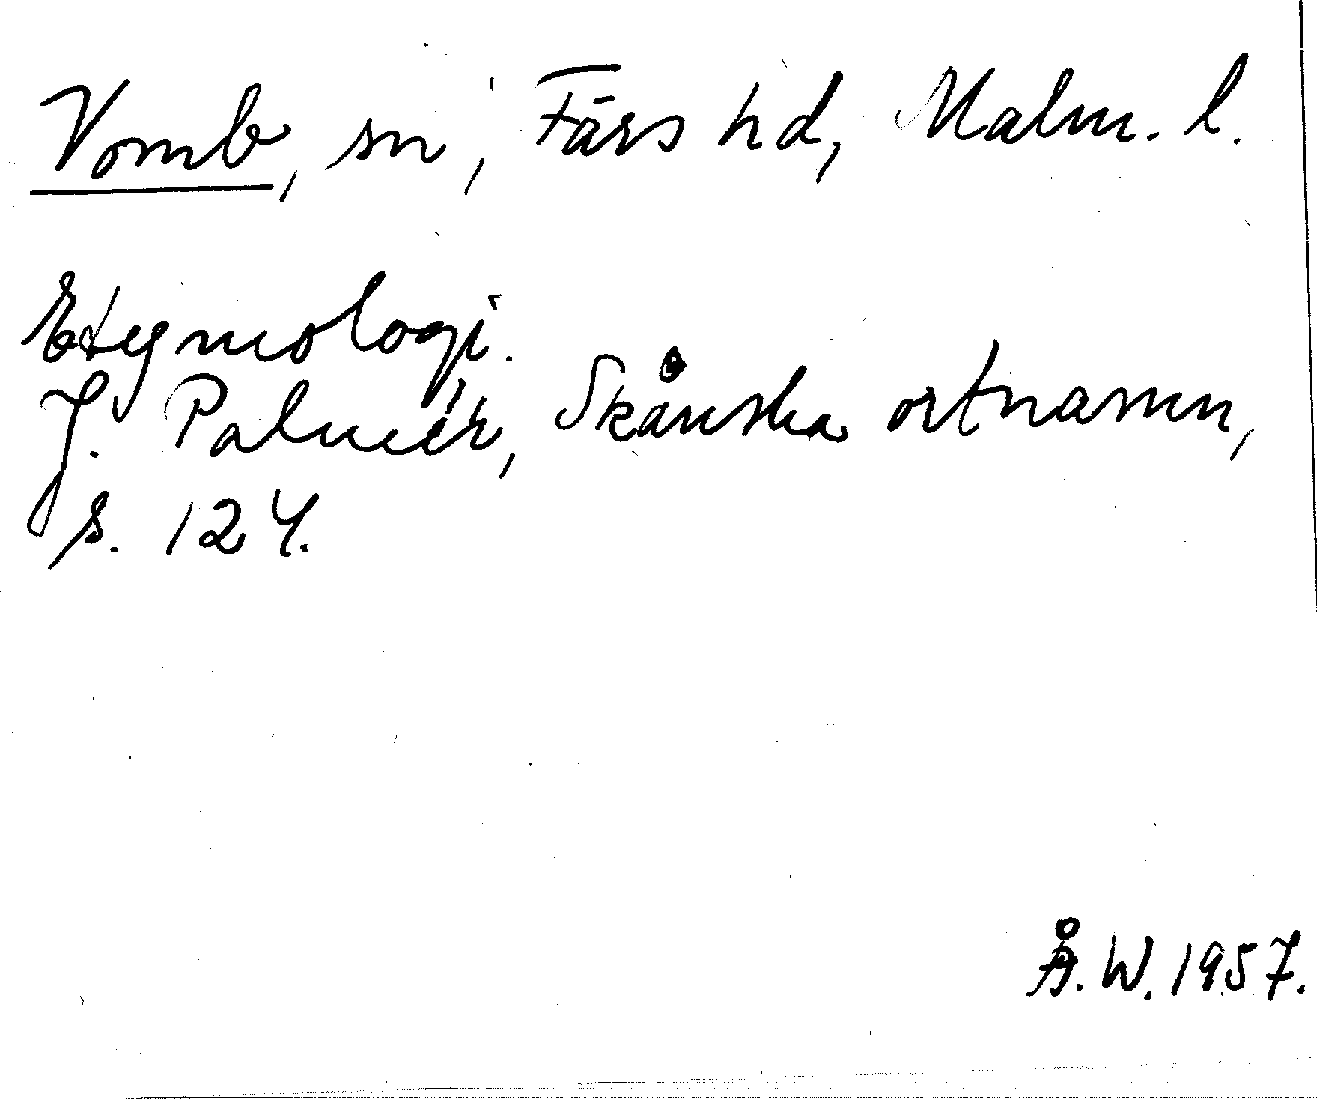 Vomb, sn, Färs hd, Malm. l.
Etymologi.
J. Palmér, Skånska ortnamn,
s. 124.
Å. W. 1957.